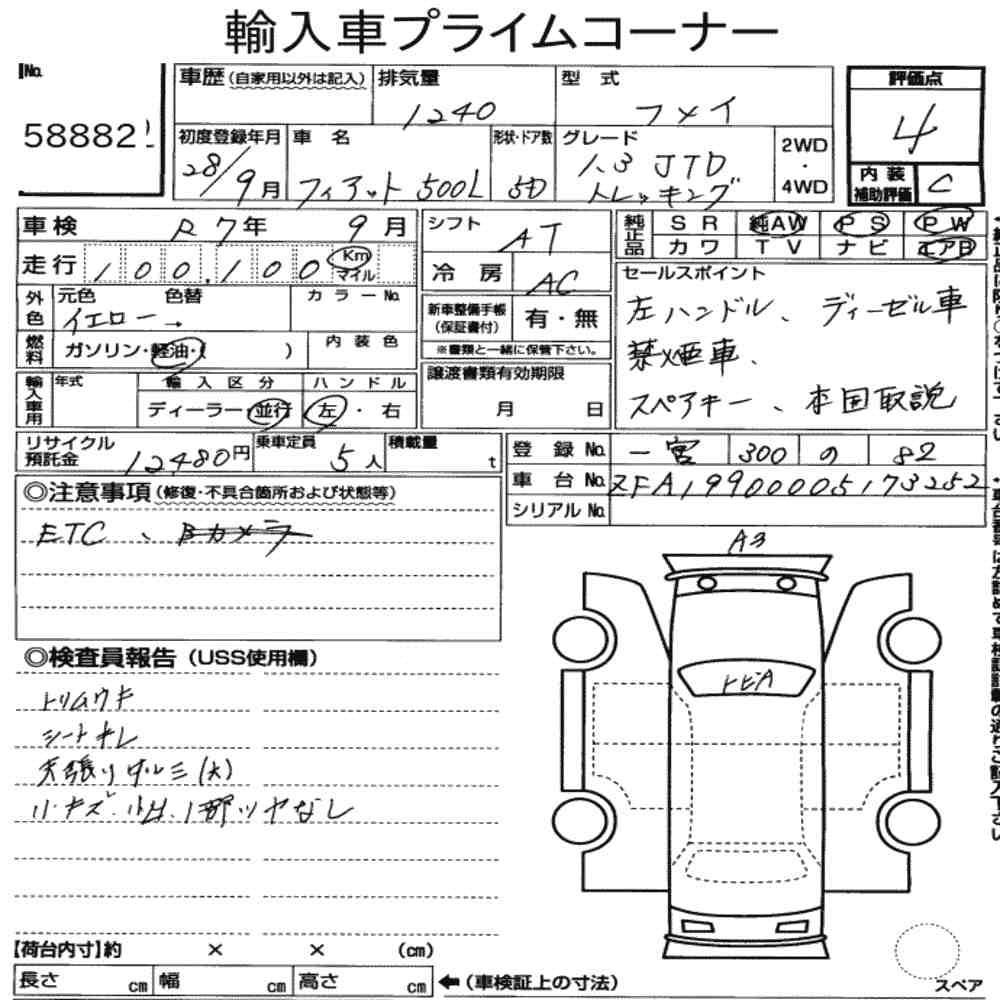 輸入車プライムコーナー
No. 58882
車歴(自家用以外は記入) 排気量 1240 型式 フメイ
評価点 4
初度登録年月 28/9月 車名 フィアット 500L 形状・ドア数 5D グレード 1.3 JTD トレッキング 2WD・4WD
内装補助評価 C
車検 R7年 9月 シフト AT
純正品 SR 純AW PS PW
カワ TV ナビ エアB
走行 100,100 Km マイル 冷房 AC
セールスポイント
左ハンドル、ディーゼル車
禁煙車、
スペアキー、本国取説
外色 元色 色替 カラーNo.
イエロー→
新車整備手帳(保証書付) 有・無
※書類と一緒に保管下さい。
燃料 ガソリン・軽油・( ) 内装色
輸入車用 年式 輸入区分 ハンドル
ディーラー・並行 左・右
譲渡書類有効期限
月 日
リサイクル預託金 12480円 乗車定員 5人 積載量 t
登録No. 一宮 300 の 82
車台No. ZFA19900005173252
シリアルNo.
◎注意事項(修復・不具合箇所および状態等)
ETC、Bカメラ
A3
トビA
◎検査員報告(USS使用欄)
トリムウキ
シートキレ
天張りタルミ(大)
小キズ.小凹.1部ツヤなし
【荷台内寸】約 × × (cm)
長さ cm 幅 cm 高さ cm ←(車検証上の寸法)
スペア